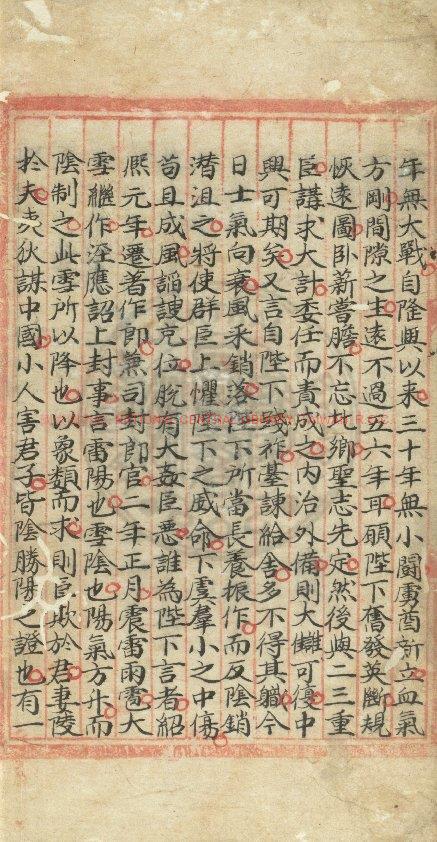 年無大戰自隆興以来三十年無小鬪虜酋新立血氣
方剛間隙之生遠不過五六年耳願陛下奮發英斷規
恢遠圖卧薪嘗膽不忘北鄉聖志先定然後與二三重
臣講求大計委任而責成之内治外備則大讎可復中
興可期矣又言自陛下踐祚臺諫給舍多不得其職今
日士氣向衰風采銷落陛下所當長養振作而反陰銷
潛沮之將使群臣上懼陛下之威命下虞羣小之中傷
苟且成風謟諛充位脫有大姦臣惡誰為陛下言者紹
熈元年遷著作郎兼司封郎官二年正月震雷雨雹大
雪繼作湜應詔上封事言雷陽也雪陰也陽氣方升而
陰制之此雪所以降也以象類而求則臣欺於君妻陵
扵夫夷狄謀中國小人害君子皆陰勝陽之證也有一